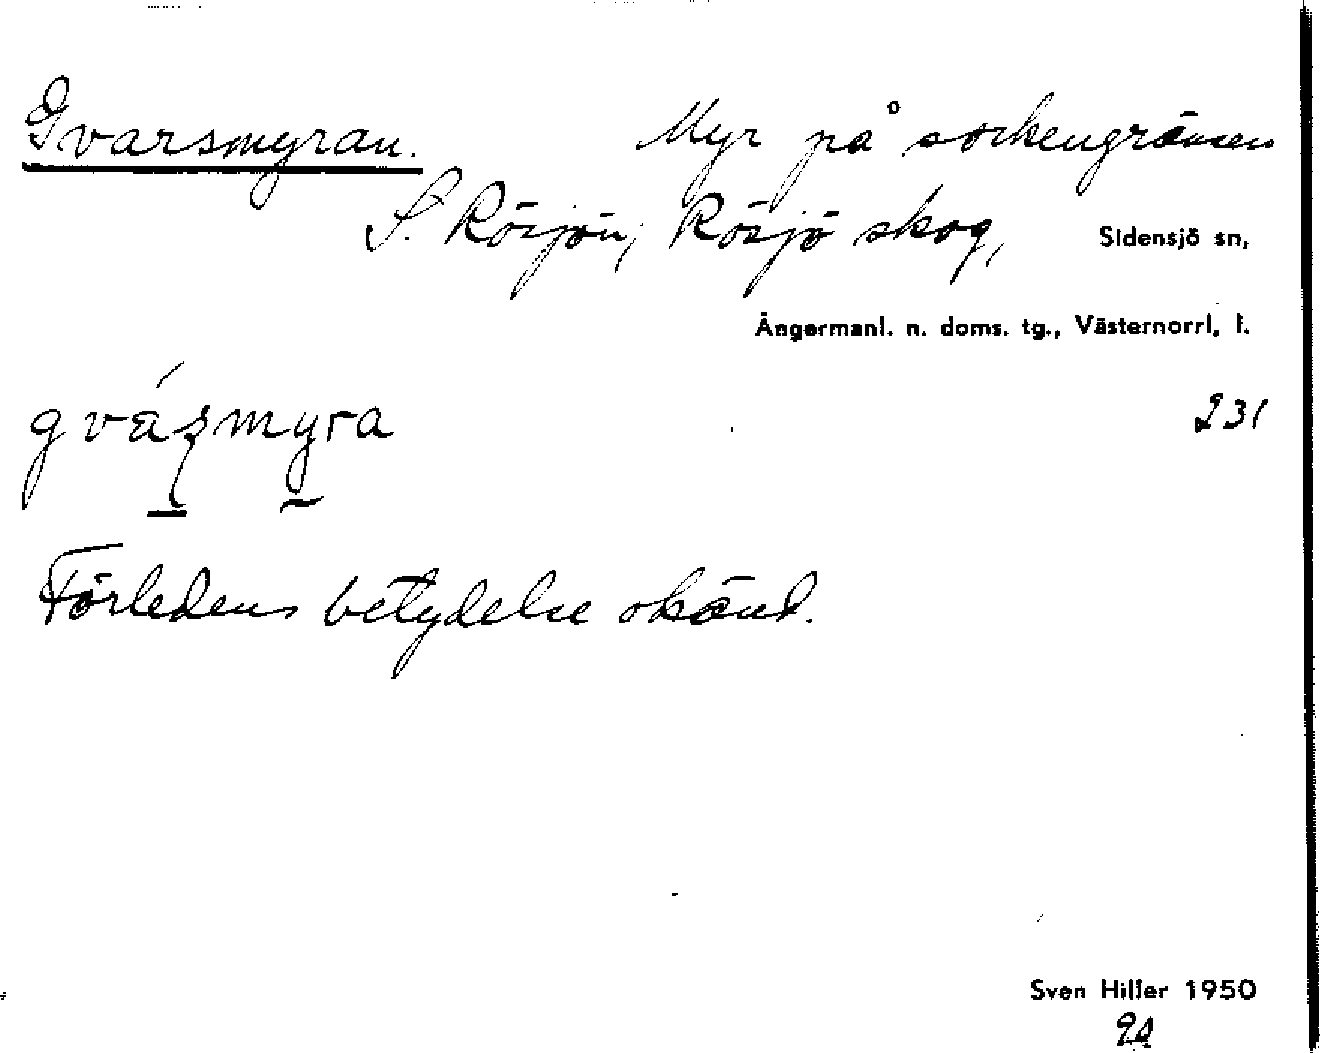 Gvarsmyran. Myr på sockengränsen
S. Rösjön; Rösjö skog, Sidensjö sn,
Ångermanl. n. doms. tg., Västernorrl. l.
gvásmyra 231
Förledens betydelse okänd.
Sven Hiller 1950